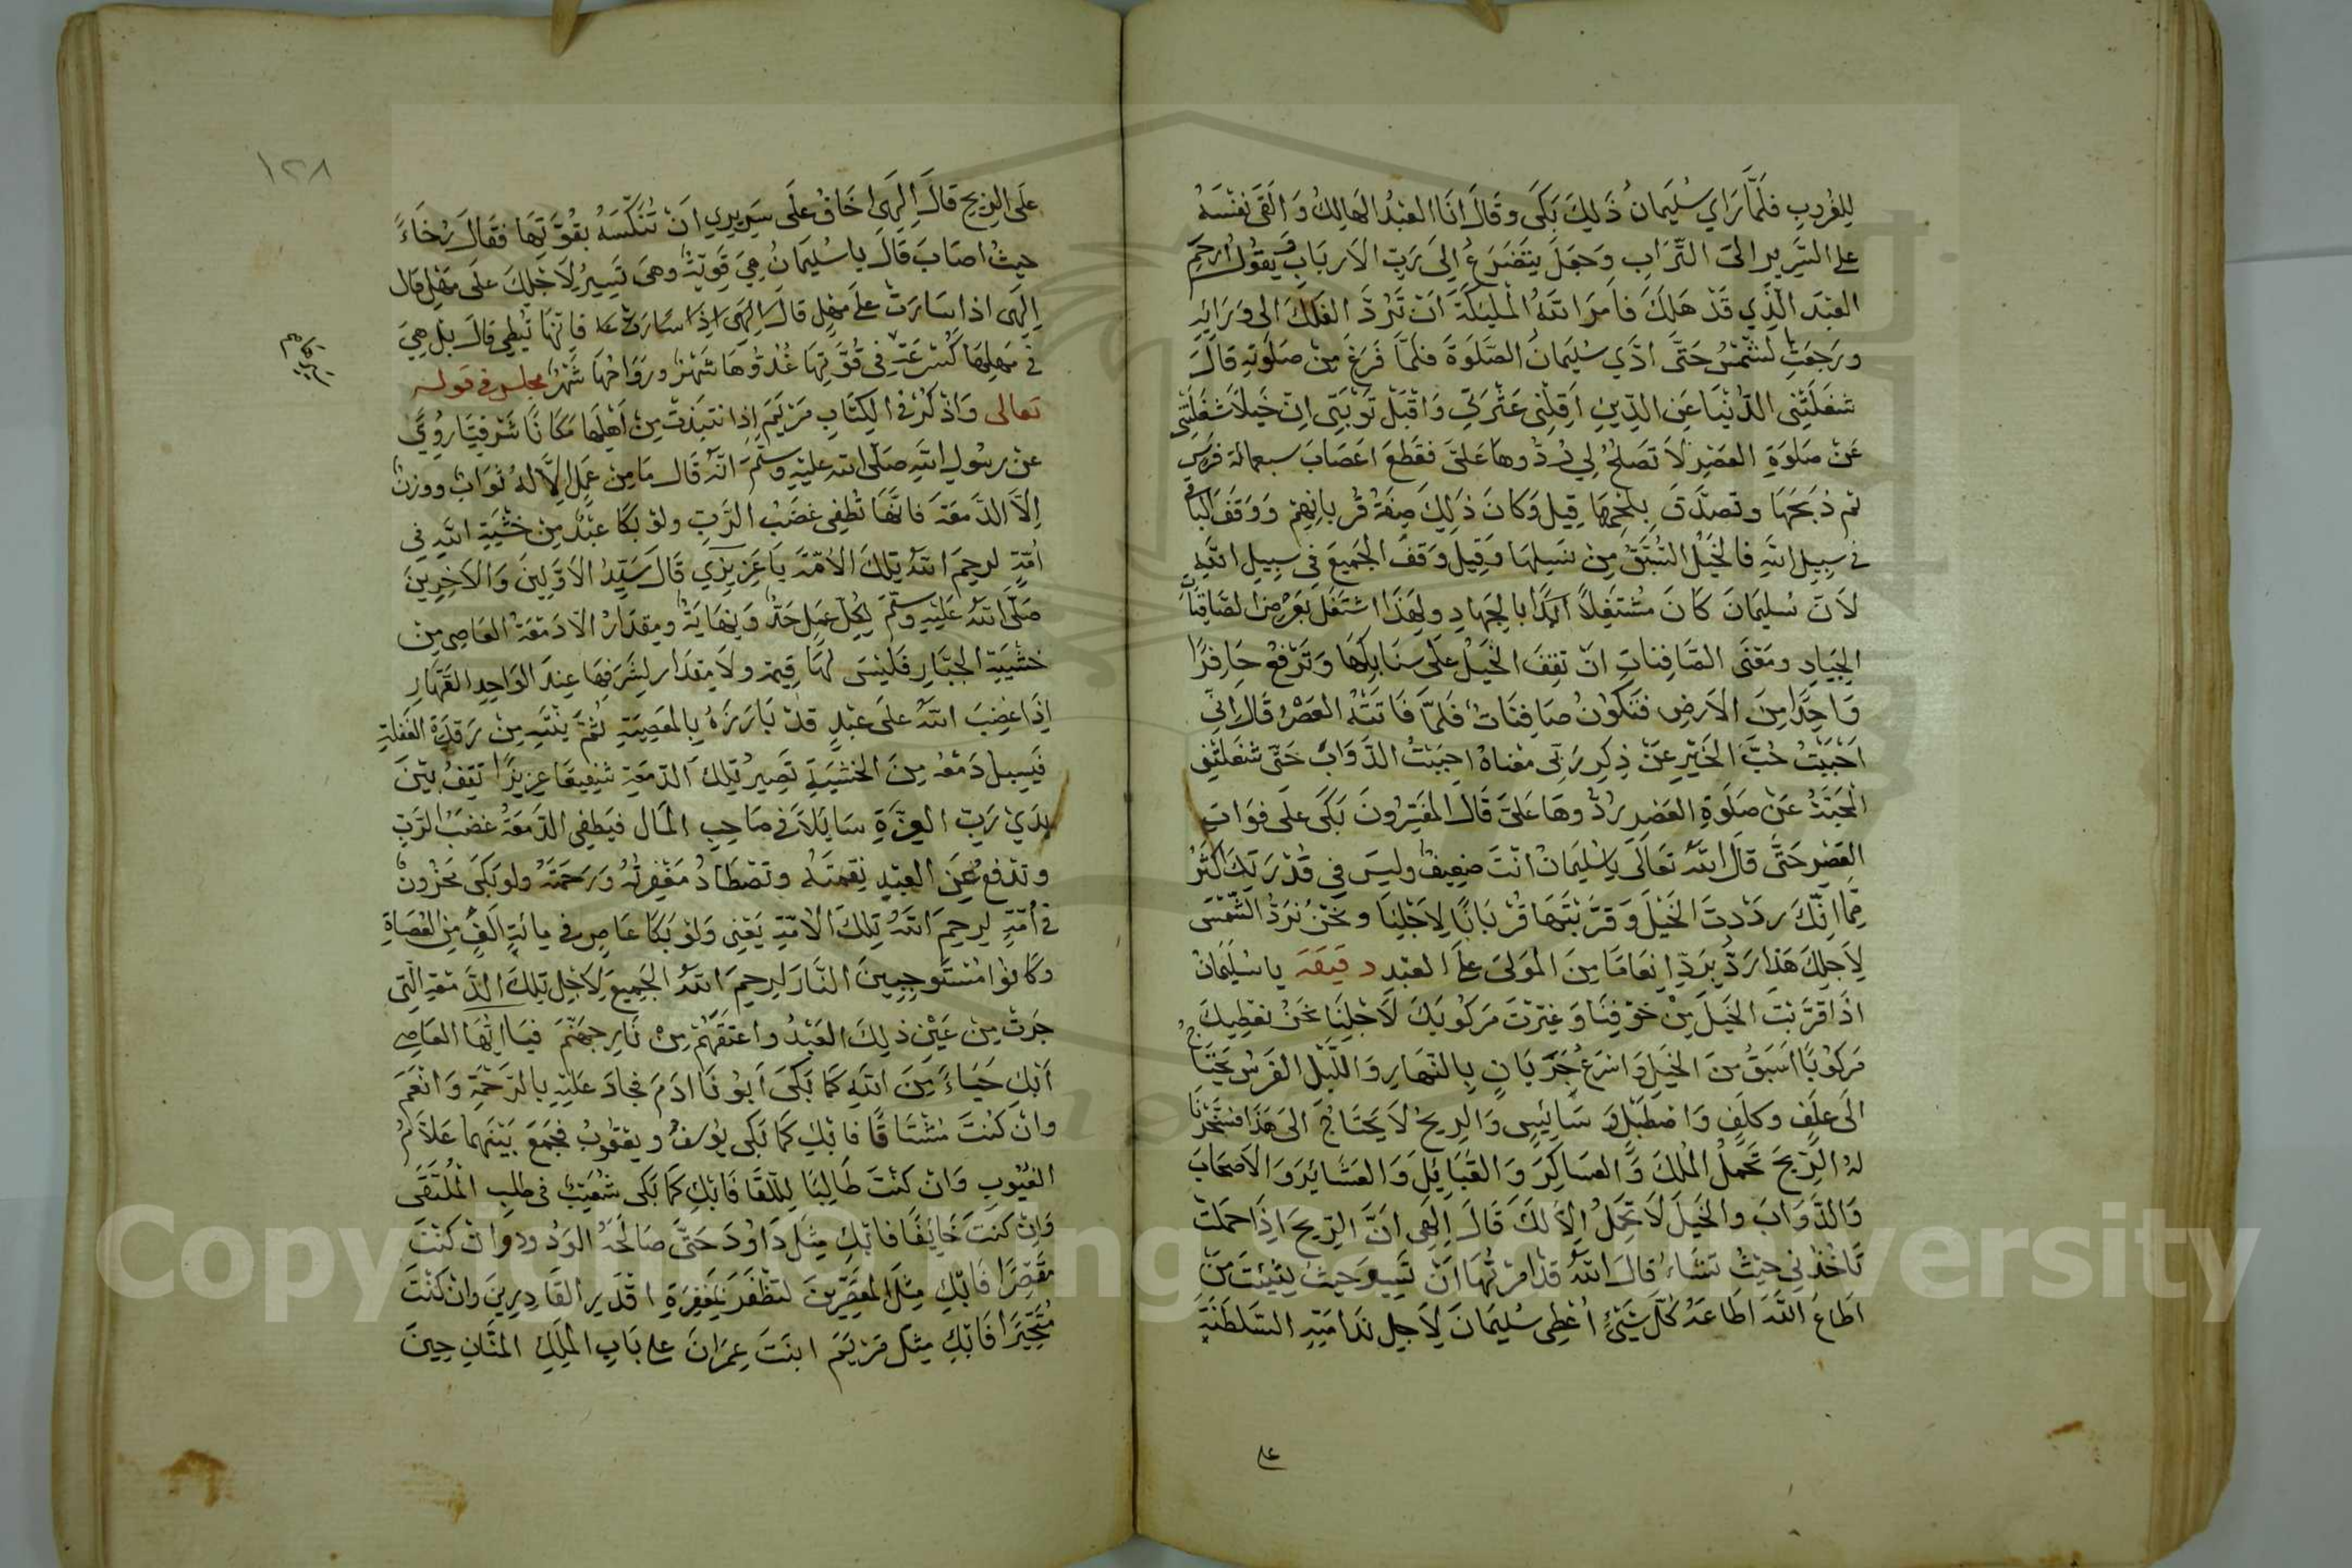 للغروب فلما راي سليمان ذلك بكى وقال انا العبد الهالك والقى نفسه
على السرير الى التراب وجعل يتضرع الى رب الارباب ويقول ارحم
العبد الذي قد هلك فامر الله المليكة ان ترد الفلك الى ورايه
ورجعت الشمس حتى ادي سليمان الصلوة فلما فرغ من صلوته قال
شغلتني الدنيا عن الدين اقلني عثرتي واقبل توبتي ان خيلا شغلتني
عن صلوة العصر لا تصلح لي ردوها على فقطع اعصاب سبعمائة فرس
ثم ذبحها وتصدق بلحمها قيل وكان ذلك صفة قربانهم ووقف الباقي
في سبيل الله فالخيل السبق من نسلها وقيل وقف الجميع في سبيل الله
لان سليمان كان مشتغلا ابدا بالجهاد ولهذا اشتغل بعرض الصافنات
الجياد ومعنى الصافنات ان تقف الخيل على سنابكها وترفع حافرا
واحدا من الارض فتكون صافنات فلما فاتته العصر قال اني
احببت حب الخير عن ذكر ربي معناه احببت الدواب حتى شغلتني
المحبة عن صلوة العصر ردوها على قال المفسرون بكى على فوات
العصر حتى قال الله تعالى يا سليمان انت ضعيف وليس في قدرتك اكثر
مما انك رددت الخيل وقربتها قربانا لاجلنا ونحن نرد الشمس
لاجلك هذا رد برد انعاما من المولى على العبد دقيقة يا سليمان
اذا قربت الخيل من خوفنا وغيرت مركوبك لاجلنا نحن نعطيك
مركوبا اسبق من الخيل واسرع جريان بالنهار والليل الفرس يحتاج
الى علف وكلف واصطبل و سايس والريح لا يحتاج الى هذا فسخرنا
له الريح تحمل الملك والعساكر والقبايل والعشائر والاصحاب
والدواب والخيل لا تحمل الا لك قال الهي ان الريح اذا حملت
تاخذني حيث تشاء قال الله قد امرتها ان تسير حيث شيئت من
اطاع الله اطاعه كل شيئ اعطى سليمان لاجل ندامته السلطنة
على
١٢٨
على الريح قال الهي اخاف على سريري ان تنكسه بقوتها فقال رخاء
حيث اصاب قال يا سليمان هي قوية وهي تسير لاجلك على مهل قال
الهى اذا سارت على مهل قال الهي اذا سارت على فانها تبطي قال بل هي
في مهلها كسرعة في قوتها غدوها شهر ورواحها شهر مجلس في قوله
تعالى واذكر في الكتاب مريم اذ انتبذت من اهلها مكانا شرقيا روي
عن رسول الله صلى الله عليه وسلم انه قال ما من عمل الا له ثواب ووزن
الا الدمعة فانها تطفي غضب الرب ولو بكا عبد من خشية الله في
امة لرحم الله تلك الامة يا عزيزي قال سيد الاولين والاخرين
صلى الله عليه وسلم لكل عمل حد ونهاية ومقدار الا دمعة العاصي من
خشية الجبار فليس لها قيمة ولا مقدار لشرفها عند الواحد القهار
اذا غضب الله على عبد قد بارزه بالمعصية ثم ينتبه من رقدة الغفلة
فيسيل دمعه من الخشية تصير تلك الدمعة شفيعا عزيزا تقف بين
يدي رب العزة سايلا في صاحب المال فيطفي الدمعة غضب الرب
وتدفع عن العبد نقمته وتصطاد مغفرته ورحمته ولو بكى محزون
في امة ليرحم الله تلك الامة يعني ولو بكا عاص في مائة الف من العصاة
وكانوا مستوجبين النار ليرحم الله الجميع لاجل تلك الدمعة التي
جرت من عين ذلك العبد واعتقهم من نار جهنم فيا ايها العاصي
ابك حياء من الله كما بكى ابونا ادم فجاد عليه بالرحمة وانعم
وان كنت مشتاقا فابك كما بكى يوسف ويعقوب فجمع بينهما علام
الغيوب وان كنت طالبا للقا فابك كما بكى شعيب في طلب الملتقى
وان كنت خايفا فابك مثل داود حتى صالحه الودود وان كنت
مقصرا فابك مثل المقصرين لتظفر بمغفرة اقدر القادرين وان كنت
متحيرا فابك مثل مريم ابنت عمران على باب الملك المنان حين
Copyright © King Saud University